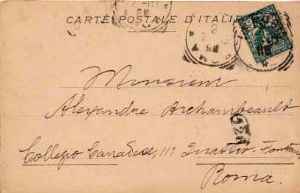 CARTE POSTALE D'ITALI
Monsieur
Alexandre Archambeault
Collegio Canadese, 117 Quattro Fontane
Roma.